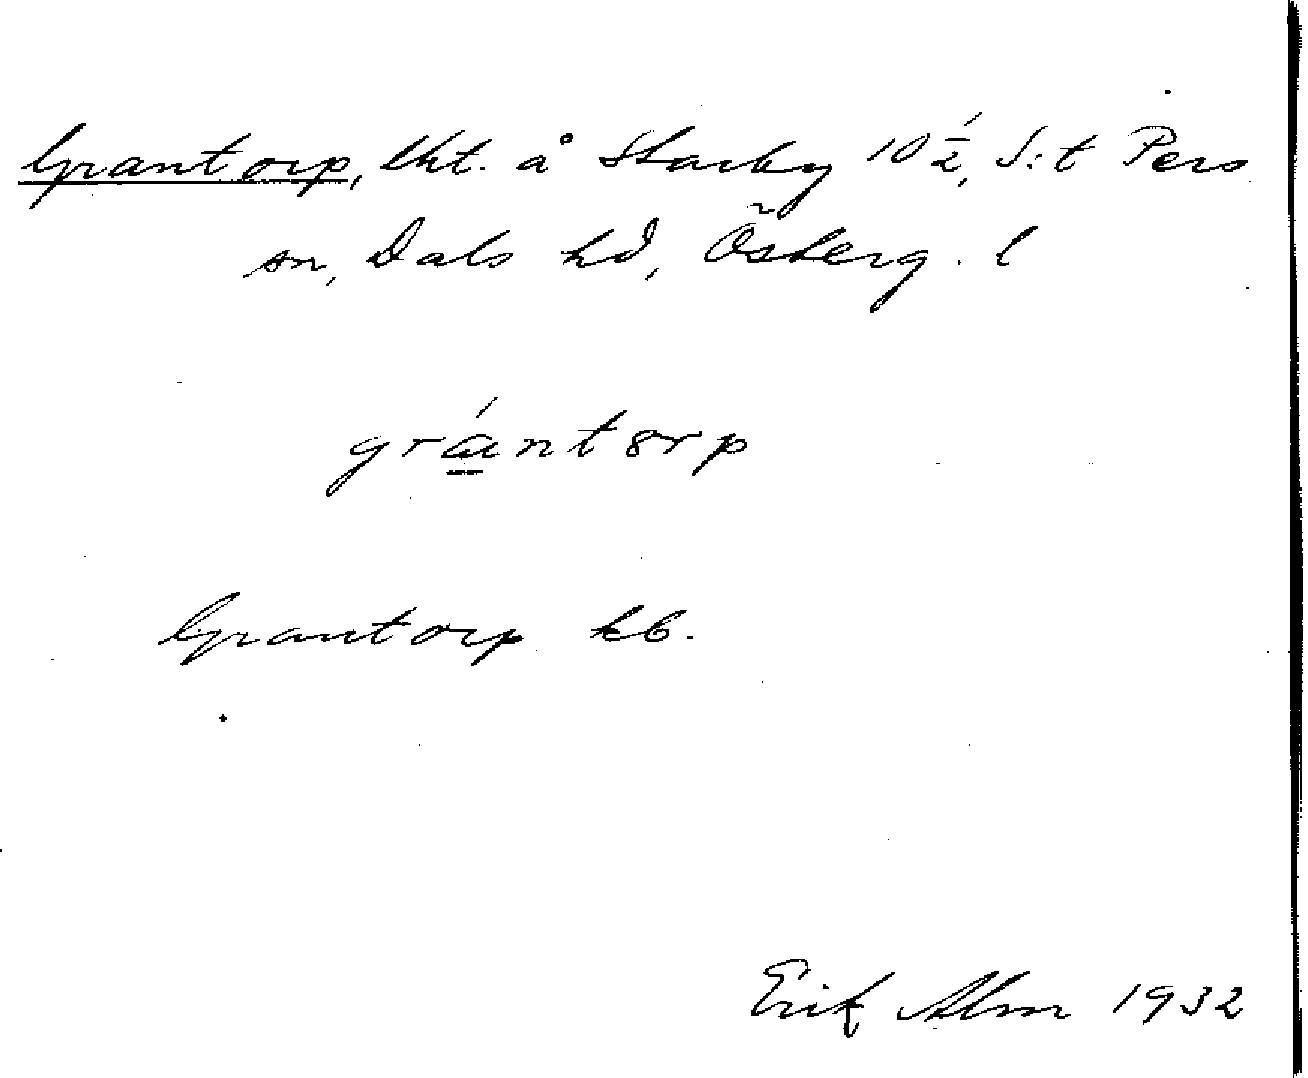 Grantorp, lht. å Starby 10 1/2, S:t Pers
sn, Dals hd, Östergˑ l
grántȣrp
Grantorp kb.
Erik Alm 1932